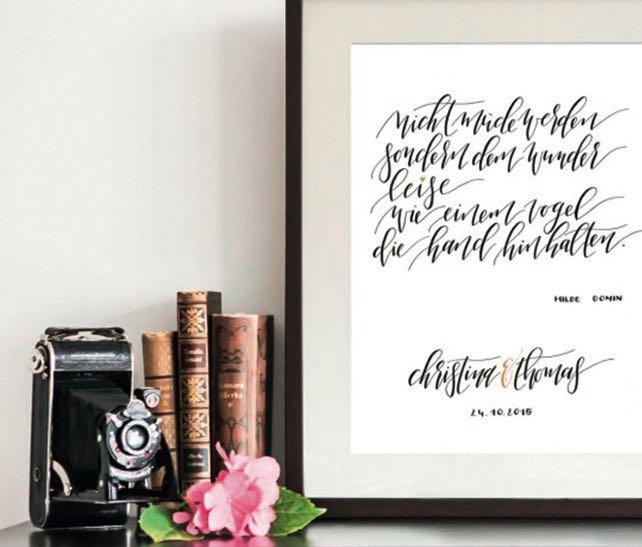 nicht müde werden
sondern dem wunder
leise
wie einem vogel
die hand hinhalten.
HILDE DOMIN
christina & thomas
24.10.2015